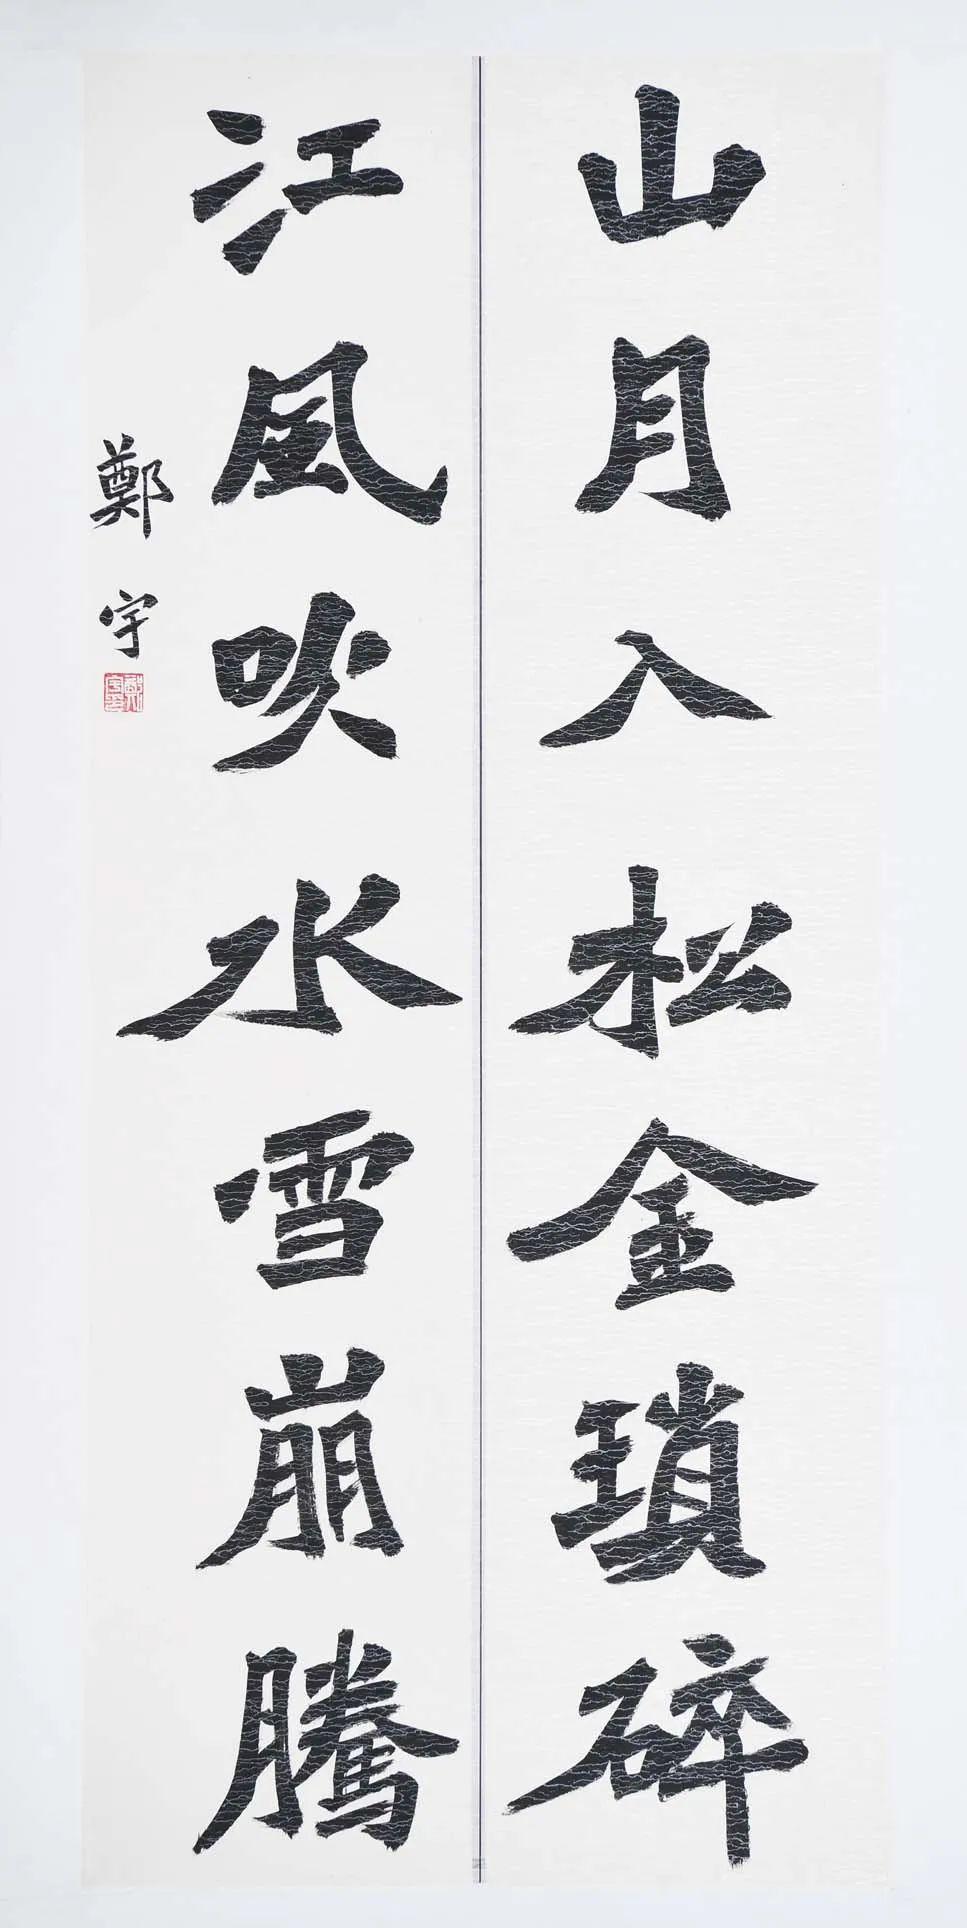 山月入松金瑣碎
江風吹水雪崩騰
鄭宇